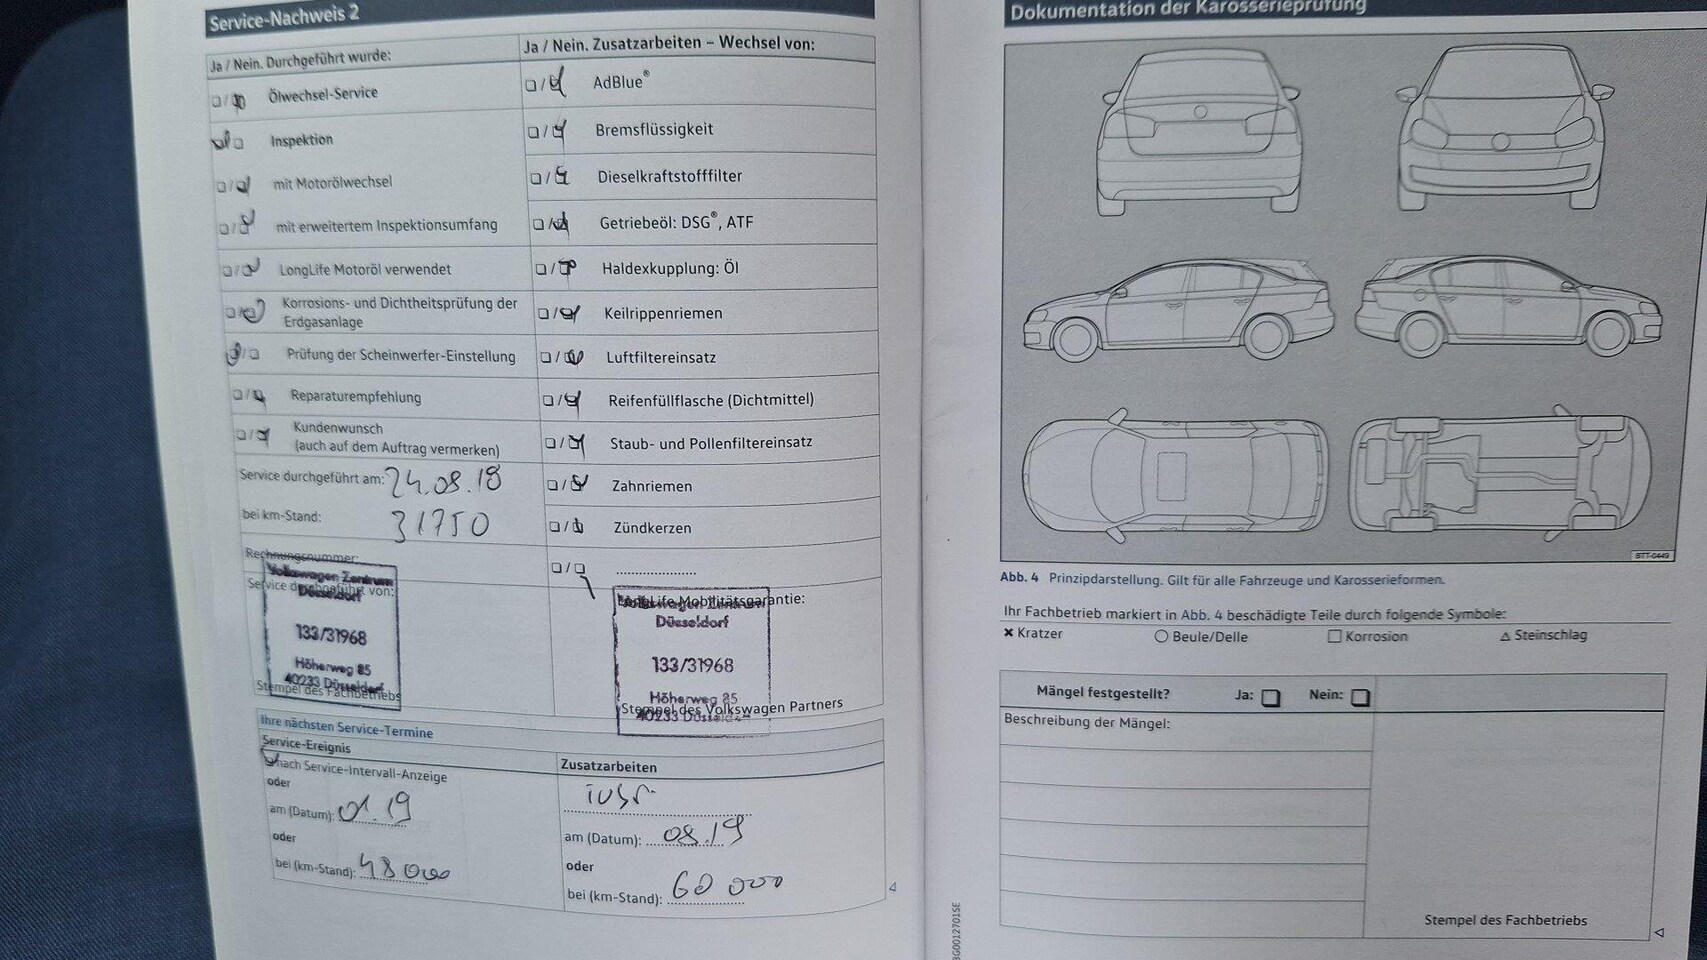 Service-Nachweis 2
Ja / Nein. Durchgeführt wurde:
Ölwechsel-Service
Inspektion
mit Motorölwechsel
mit erweitertem Inspektionsumfang
LongLife Motoröl verwendet
Korrosions- und Dichtheitsprüfung der
Erdgasanlage
Prüfung der Scheinwerfer-Einstellung
Reparaturempfehlung
Kundenwunsch
(auch auf dem Auftrag vermerken)
Service durchgeführt am: 24.08.18
bei km-Stand: 31750
Rechnungsnummer:
Service durchgeführt von:
Volkswagen Zentrum
Düsseldorf
133/31968
Höherweg 85
40233 Düsseldorf
Stempel des Fachbetriebs
Ja / Nein. Zusatzarbeiten – Wechsel von:
AdBlue®
Bremsflüssigkeit
Dieselkraftstofffilter
Getriebeöl: DSG®, ATF
Haldexkupplung: Öl
Keilrippenriemen
Luftfiltereinsatz
Reifenfüllflasche (Dichtmittel)
Staub- und Pollenfiltereinsatz
Zahnriemen
Zündkerzen
LongLife Mobilitätsgarantie:
Volkswagen Zentrum
Düsseldorf
133/31968
Höherweg 85
40233 Düsseldorf
Stempel des Volkswagen Partners
Ihre nächsten Service-Termine
Service-Ereignis
nach Service-Intervall-Anzeige
oder
am (Datum): 01.19
oder
bei (km-Stand): 48000
Zusatzarbeiten
am (Datum): 08.19
oder
bei (km-Stand): 60 000
Dokumentation der Karosserieprüfung
BTT-0449
Abb. 4 Prinzipdarstellung. Gilt für alle Fahrzeuge und Karosserieformen.
Ihr Fachbetrieb markiert in Abb. 4 beschädigte Teile durch folgende Symbole:
Kratzer Beule/Delle Korrosion Steinschlag
Mängel festgestellt? Ja: Nein:
Beschreibung der Mängel:
Stempel des Fachbetriebs